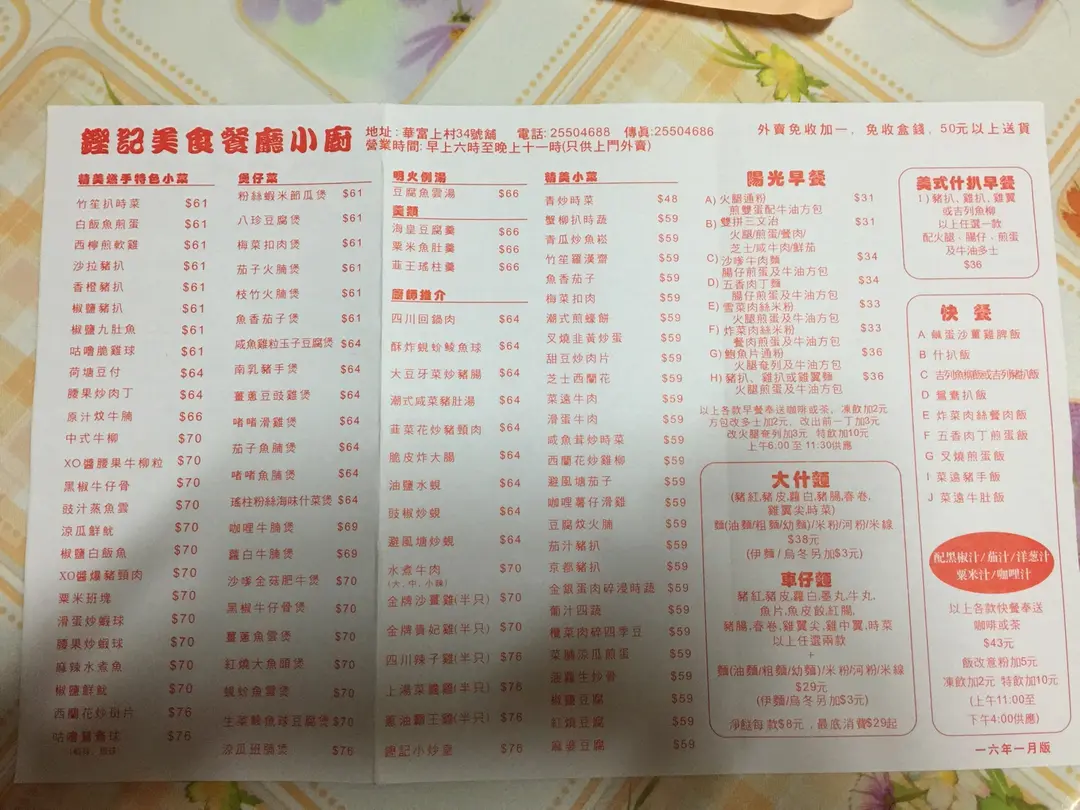 鏗記美食餐廳小廚
地址：華富上村34號舖 電話: 25504688 傳眞:25504686
營業時間: 早上六時至晚上十一時(只供上門外賣)
外賣免收加一，免收盒錢，50元以上送貨
精美巡手特色小菜
竹笙扒時菜 $61
白飯魚煎蛋 $61
西檸煎軟雞 $61
沙拉豬扒 $61
香橙豬扒 $61
椒鹽豬扒 $61
椒鹽九肚魚 $61
咕嚕脆雞球 $61
荷塘豆付 $64
腰果炒肉丁 $64
原汁炆牛腩 $66
中式牛柳 $70
XO醬腰果牛柳粒 $70
黑椒牛仔骨 $70
豉汁蒸魚雲 $70
涼瓜鮮魷 $70
椒鹽白飯魚 $70
XO醬爆豬頸肉 $70
粟米班塊 $70
滑蛋炒蝦球 $70
腰果炒蝦球 $70
麻辣水煮魚 $70
椒鹽鮮魷 $70
西蘭花炒班片 $76
咕嚕 球 $76
煲仔菜
粉絲蝦米節瓜煲 $61
八珍豆腐煲 $61
梅菜扣肉煲 $61
茄子火腩煲 $61
枝竹火腩煲 $61
魚香茄子煲 $61
咸魚雞粒玉子豆腐煲 $64
南乳豬手煲 $64
薑蔥豆豉雞煲 $64
啫啫滑雞煲 $64
茄子魚腩煲 $64
啫啫魚腩煲 $64
瑤柱粉絲海味什菜煲 $64
咖哩牛腩煲 $69
蘿白牛腩煲 $69
沙嗲金菇肥牛煲 $70
黑椒牛仔骨煲 $70
薑蔥魚雲煲 $70
紅燒大魚頭煲 $70
蜆蚧魚雲煲 $70
生菜鯪魚球豆腐煲 $70
涼瓜班腩煲 $76
明火例湯
豆腐魚雲湯 $66
羹類
海皇豆腐羹 $66
粟米魚肚羹 $66
韮王瑤柱羹 $66
廚師推介
四川回鍋肉 $64
酥炸蜆蚧鯪魚球 $64
大豆芽菜炒豬腸 $64
潮式咸菜豬肚湯 $64
韮菜花炒豬頸肉 $64
脆皮炸大腸 $64
油鹽水蜆 $64
豉椒炒蜆 $64
避風塘炒蜆 $64
水煮牛肉 $70
(大、中、小辣)
金牌沙薑雞(半只) $70
金牌貴妃雞(半只) $70
四川辣子雞(半只) $76
上湯菜膽雞(半只) $76
蔥油霸王雞(半只) $76
鏗記小炒皇 $76
精美小菜
青炒時菜 $48
蟹柳扒時蔬 $59
青瓜炒魚崧 $59
竹笙羅漢齋 $59
魚香茄子 $59
梅菜扣肉 $59
潮式煎蠔餅 $59
叉燒韮黃炒蛋 $59
甜豆炒肉片 $59
芝士西蘭花 $59
菜遠牛肉 $59
滑蛋牛肉 $59
咸魚茸炒時菜 $59
西蘭花炒雞柳 $59
避風塘茄子 $59
咖哩薯仔滑雞 $59
豆腐炆火腩 $59
茄汁豬扒 $59
京都豬扒 $59
金銀蛋肉碎浸時蔬 $59
葡汁四蔬 $59
欖菜肉碎四季豆 $59
菜脯涼瓜煎蛋 $59
菠蘿生炒骨 $59
椒鹽豆腐 $59
紅燒豆腐 $59
麻婆豆腐 $59
陽光早餐
A) 火腿通粉 $31
煎雙蛋配牛油方包
B) 雙拼三文治 $31
火腿/煎蛋/餐肉/
芝士/咸牛肉/鮮茄
C) 沙嗲牛肉麵 $34
腸仔煎蛋及牛油方包
D) 五香肉丁麵 $34
腸仔煎蛋及牛油方包
E) 雪菜肉絲米粉 $33
火腿煎蛋及牛油方包
F) 炸菜肉絲米粉 $33
餐肉煎蛋及牛油方包
G) 鮑魚片通粉 $36
火腿奄列及牛油方包
H) 豬扒、雞扒或雞翼麵 $36
火腿煎蛋及牛油方包
以上各款早餐奉送咖啡或茶，凍飲加2元
方包改多士加2元，改出前一丁加3元
改火腿奄列加3元 特飲加10元
上午6:00 至 11:30供應
大什麵
(豬紅,豬皮,蘿白,豬腸,香卷,
雞翼尖,時菜)
麵(油麵/粗麵/幼麵)/米粉/河粉/米線
$38元
(伊麵/烏冬另加$3元)
車仔麵
豬紅,豬皮,蘿白,墨丸,牛丸,
魚片,魚皮餃,紅腸,
豬腸,香卷,雞翼尖,雞中翼,時菜
以上任選兩款
+
麵(油麵/粗麵/幼麵)/米粉/河粉/米線
$29元
(伊麵/烏冬另加$3元)
淨餸每款$8元，最底消費$29起
美式什扒早餐
I) 豬扒,雞扒,雞翼
或吉列魚柳
以上任選一款
配火腿，腸仔，煎蛋
及牛油多士
$36
快餐
A 鹹蛋沙薑雞脾飯
B 什扒飯
C 吉列魚柳飯或吉列豬扒飯
D 鴛鴦扒飯
E 炸菜肉絲餐肉飯
F 五香肉丁煎蛋飯
G 叉燒煎蛋飯
I 菜遠豬手飯
J 菜遠牛肚飯
配黑椒汁/茄汁/洋蔥汁
粟米汁/咖哩汁
以上各款快餐奉送
咖啡或茶
$43元
飯改意粉加5元
凍飲加2元 特飲加10元
(上午11:00至
下午4:00供應)
一六年一月版